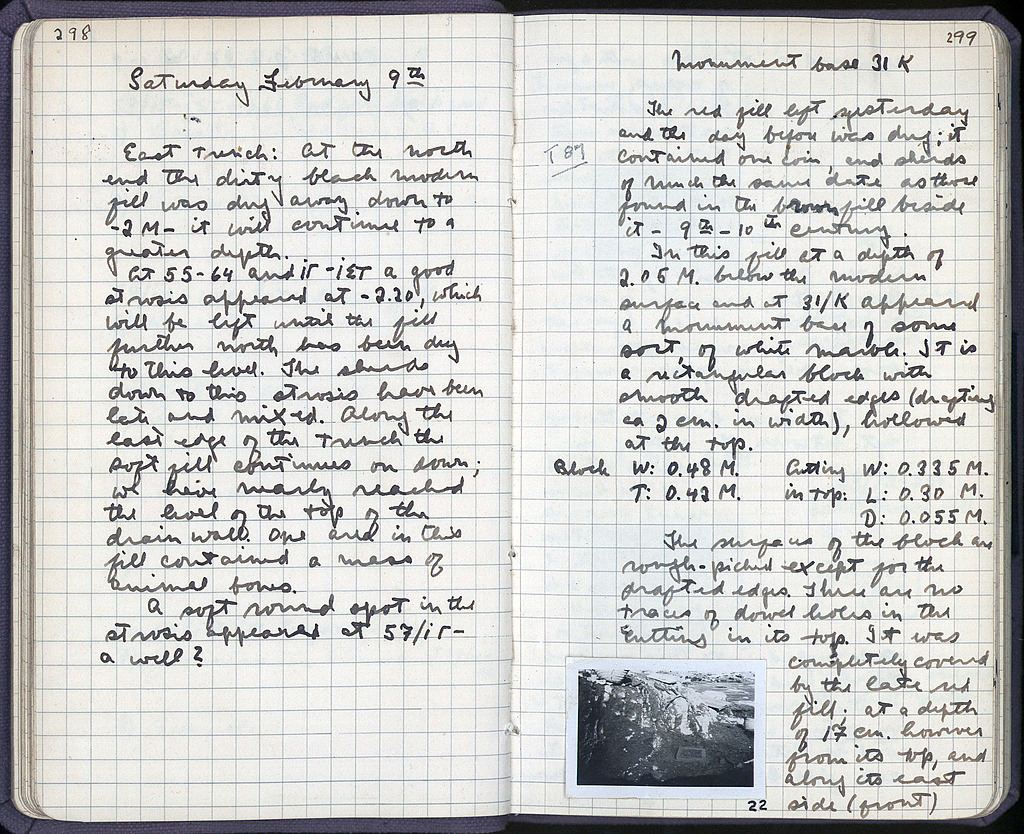 298
Saturday February 9th
East Trench: At the north
end the dirty black modern
fill was dug away down to
-2 M- it will continue to a
greater depth.
At 55-64 and ΙΓ-ΙΣΤ a good
strosis appeared at -2.20, which
will be left until the fill
further north has been dug
to this level. The sherds
down to this strosis have been
late and mixed. Along the
east edge of the trench the
soft fill continues on down;
we have nearly reached
the level of the top of the
drain wall. One area in this
fill contained a mass of
animal bones.
A soft round spot in the
strosis appeared at 57/ΙΓ-
a well?
299
Monument base 31 K
The red fill left yesterday
and the day before was dug; it
T 87
contained one coin, and sherds
of much the same date as those
found in the brown fill beside
it - 9th - 10th century.
In this fill at a depth of
2.05 M. below the modern
surface and at 31/K appeared
a monument base of some
sort, of white marble. It is
a rectangular block with
smooth drafted edges (drafting
ca 2 cm. in width), hollowed
at the top.
Block W: 0.48 M. Cutting W: 0.335 M.
T: 0.42 M. in top: L: 0.30 M.
D: 0.055 M.
The surfaces of the block are
rough-picked except for the
drafted edges. There are no
traces of dowel holes in the
cutting in its top. It was
completely covered
by the late red
fill; at a depth
of 17 cm. however
from its top, and
along its east
side (front)
22